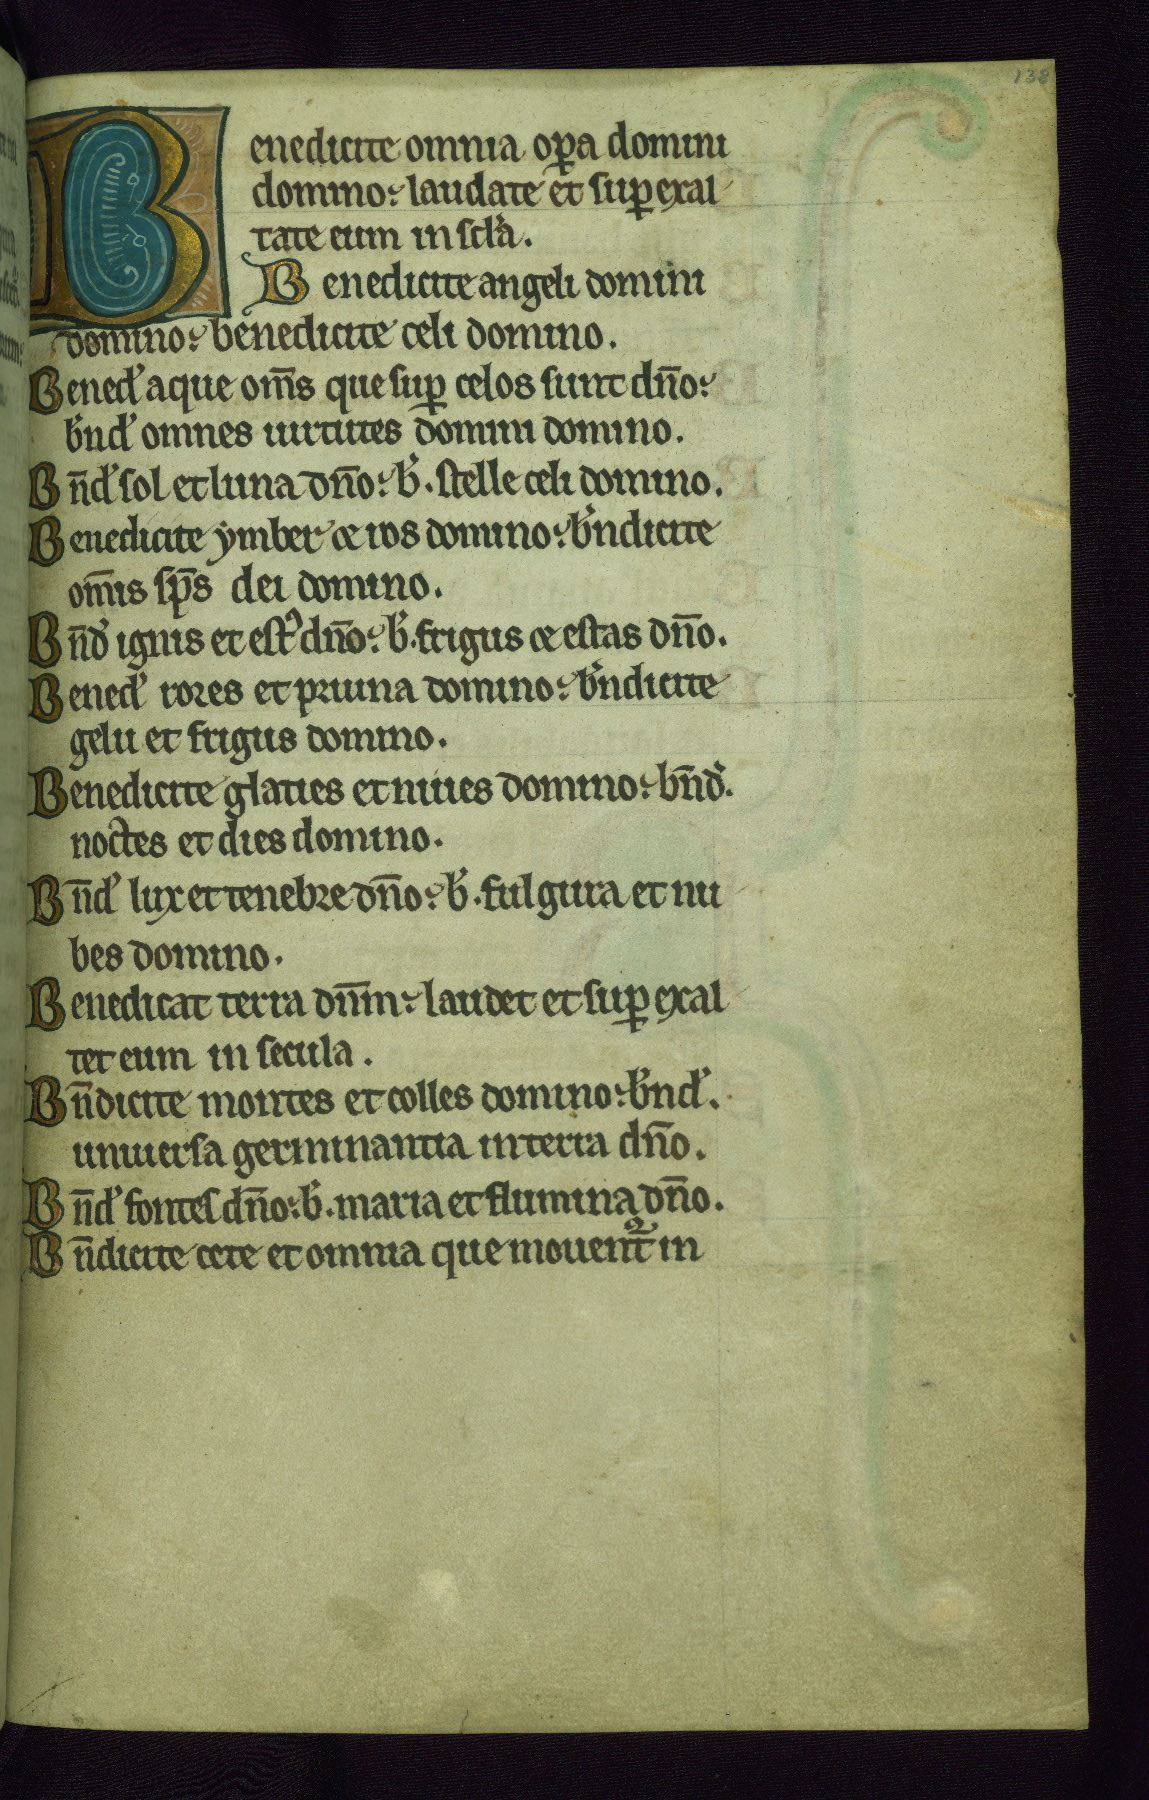 138
Benedicite omnia op̱a domini
domino: laudate et sup̱exal
tate eum in scl̓a.
Benedicite angeli domini
domino: benedicite celi domino.
Bened̓ aque om̅s que sup̱ celos sunt dn̅o:
b̓nd̓ omnes uirtutes domini domino.
Bn̅d̓ sol et luna dn̅o: b̓. stelle celi domino.
Benedicite ymber et ros domino: b̓ndicite
om̅is sp̅s dei domino.
Bn̅d̓ ignis et est᷒ dn̅o: b̓. frigus et estas dn̅o.
Bened̓ rores et pruina domino: b̓ndicite
gelu et frigus domino.
Benedicite glaties et niues domino: bn̅d̓.
noctes et dies domino.
Bn̅d̓ lux et tenebre dn̅o: b̓. fulgura et nu
bes domino.
Benedicat terra dn̅m: laudet et sup̱exal
tet eum in secula.
Bn̅dicite montes et colles domino: b̓nd̓.
uniuersa germinantia in terra dn̅o.
Bn̅d̓ fontes dn̅o: b̓. maria et flumina dn̅o.
Bn̅dicite cete et omnia que mouent᷑ in